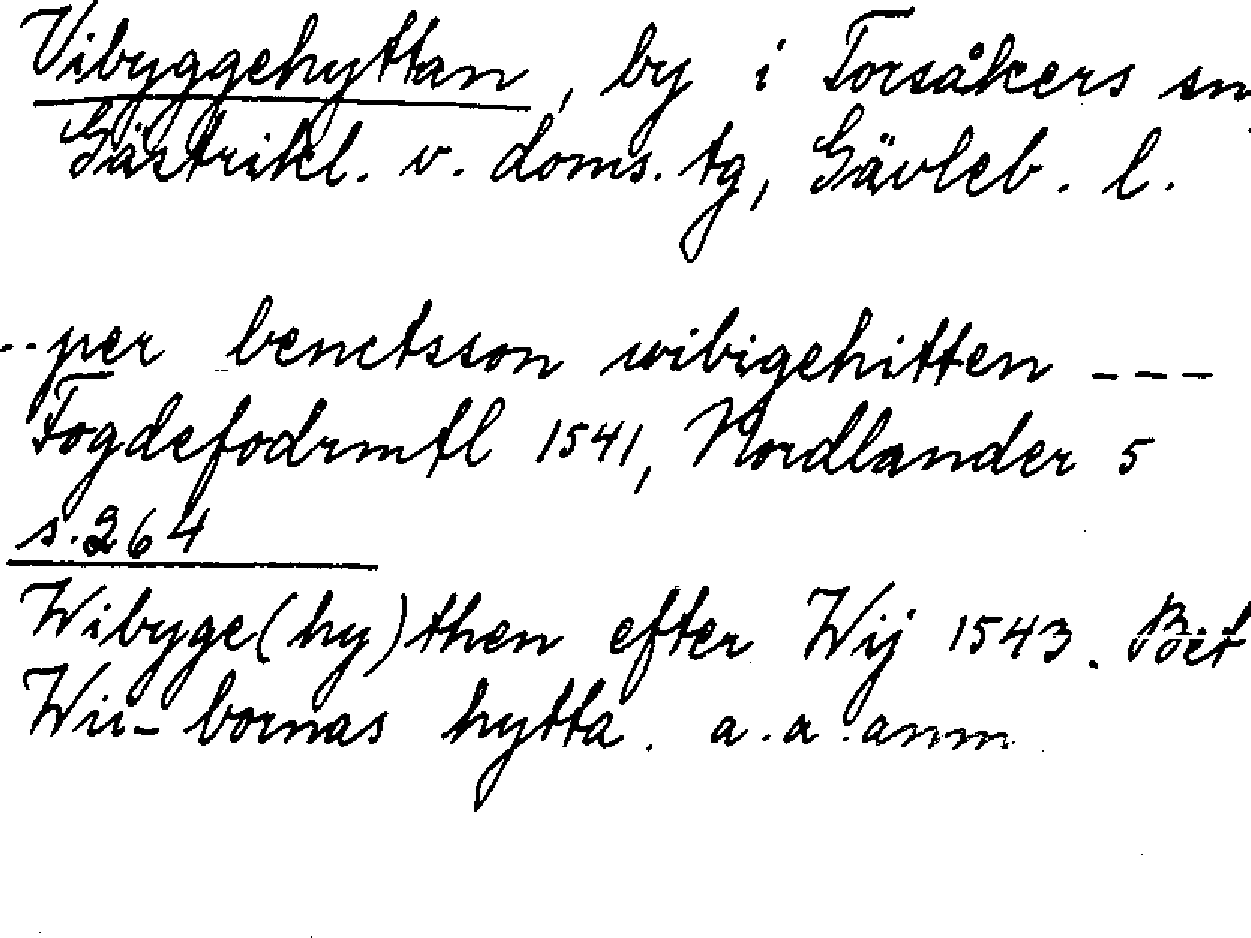 Vibyggehyttan, by i Torsåkers sn
Gästrikl. v. doms. tg, Gävleb. l.
--per benctsson wibigehitten ---
Fogdefodrmtl 1541, Nordlander 5
s. 264
Wibyge(hy)then efter Wij 1543. Bet
Wii-bornas hytta. a.a. anm